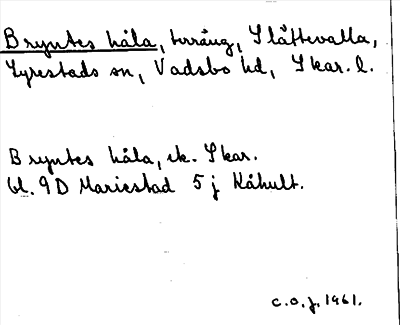 Bryntes håla, terräng, Slättevalla,
Lyrestads sn, Vadsbo hd, Skar. l.
Bryntes håla, ek. Skar.
bl. 9D Mariestad 5j Kåhult.
C.O.J. 1961.